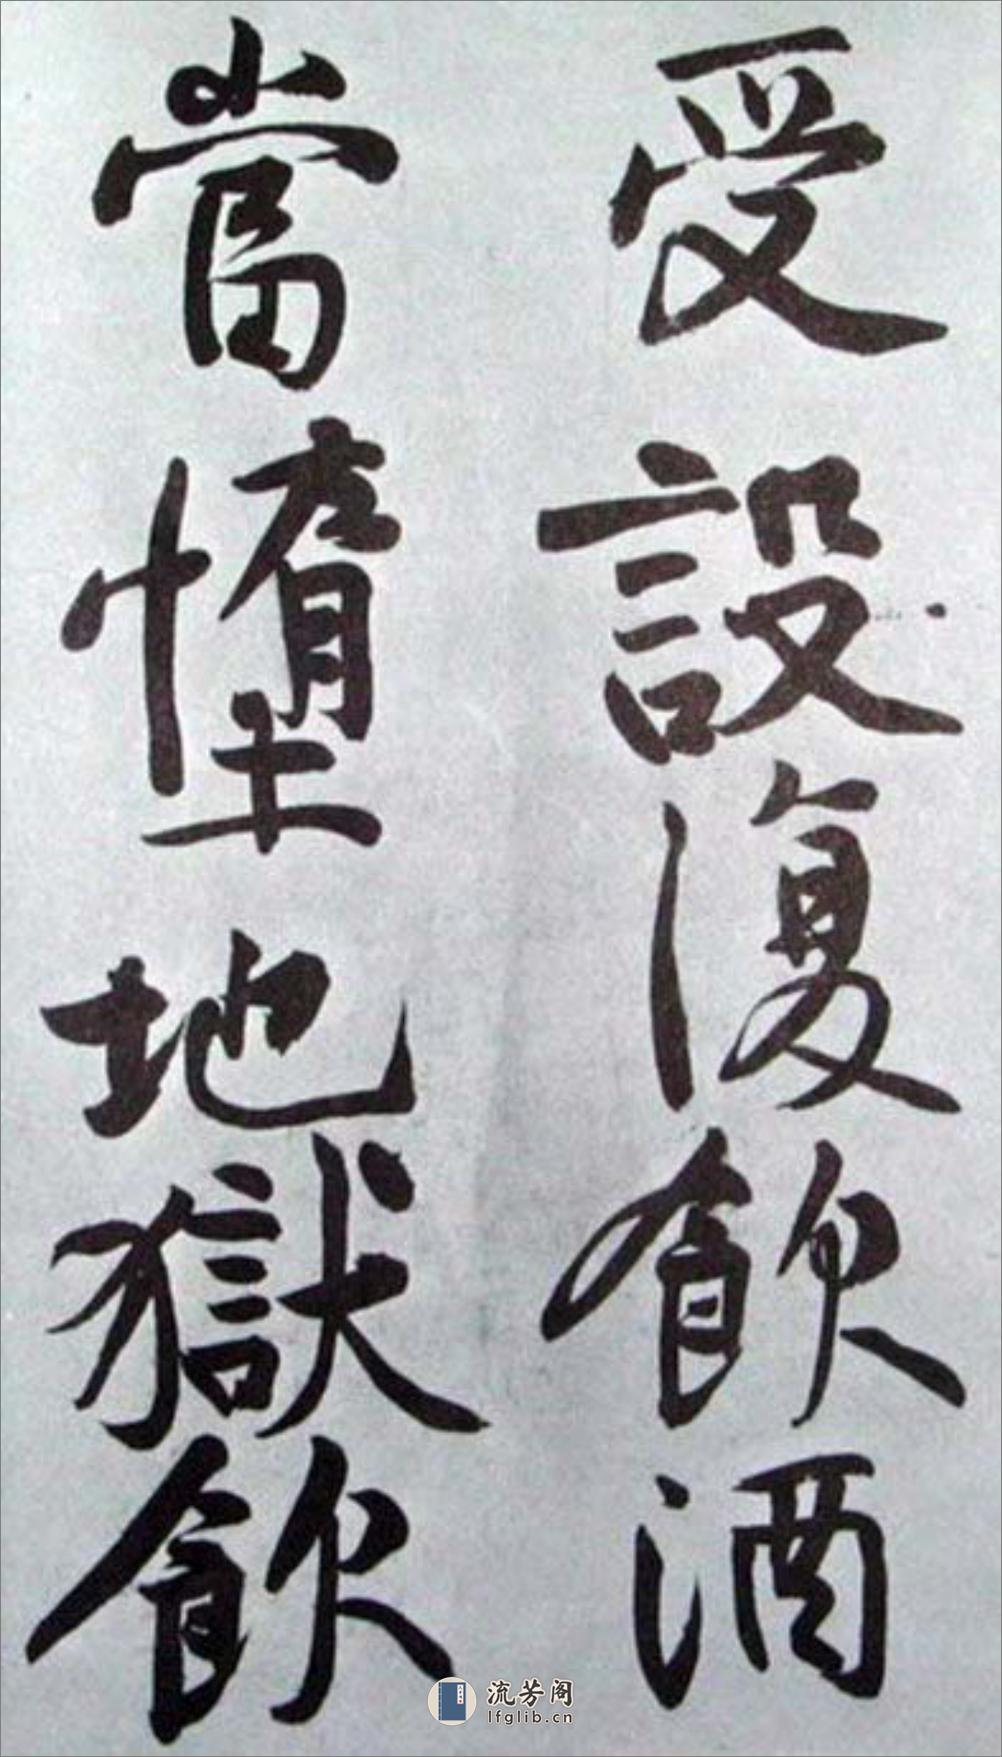 受設復飲酒
當墮地獄飲
流芳阁
lfglib.cn